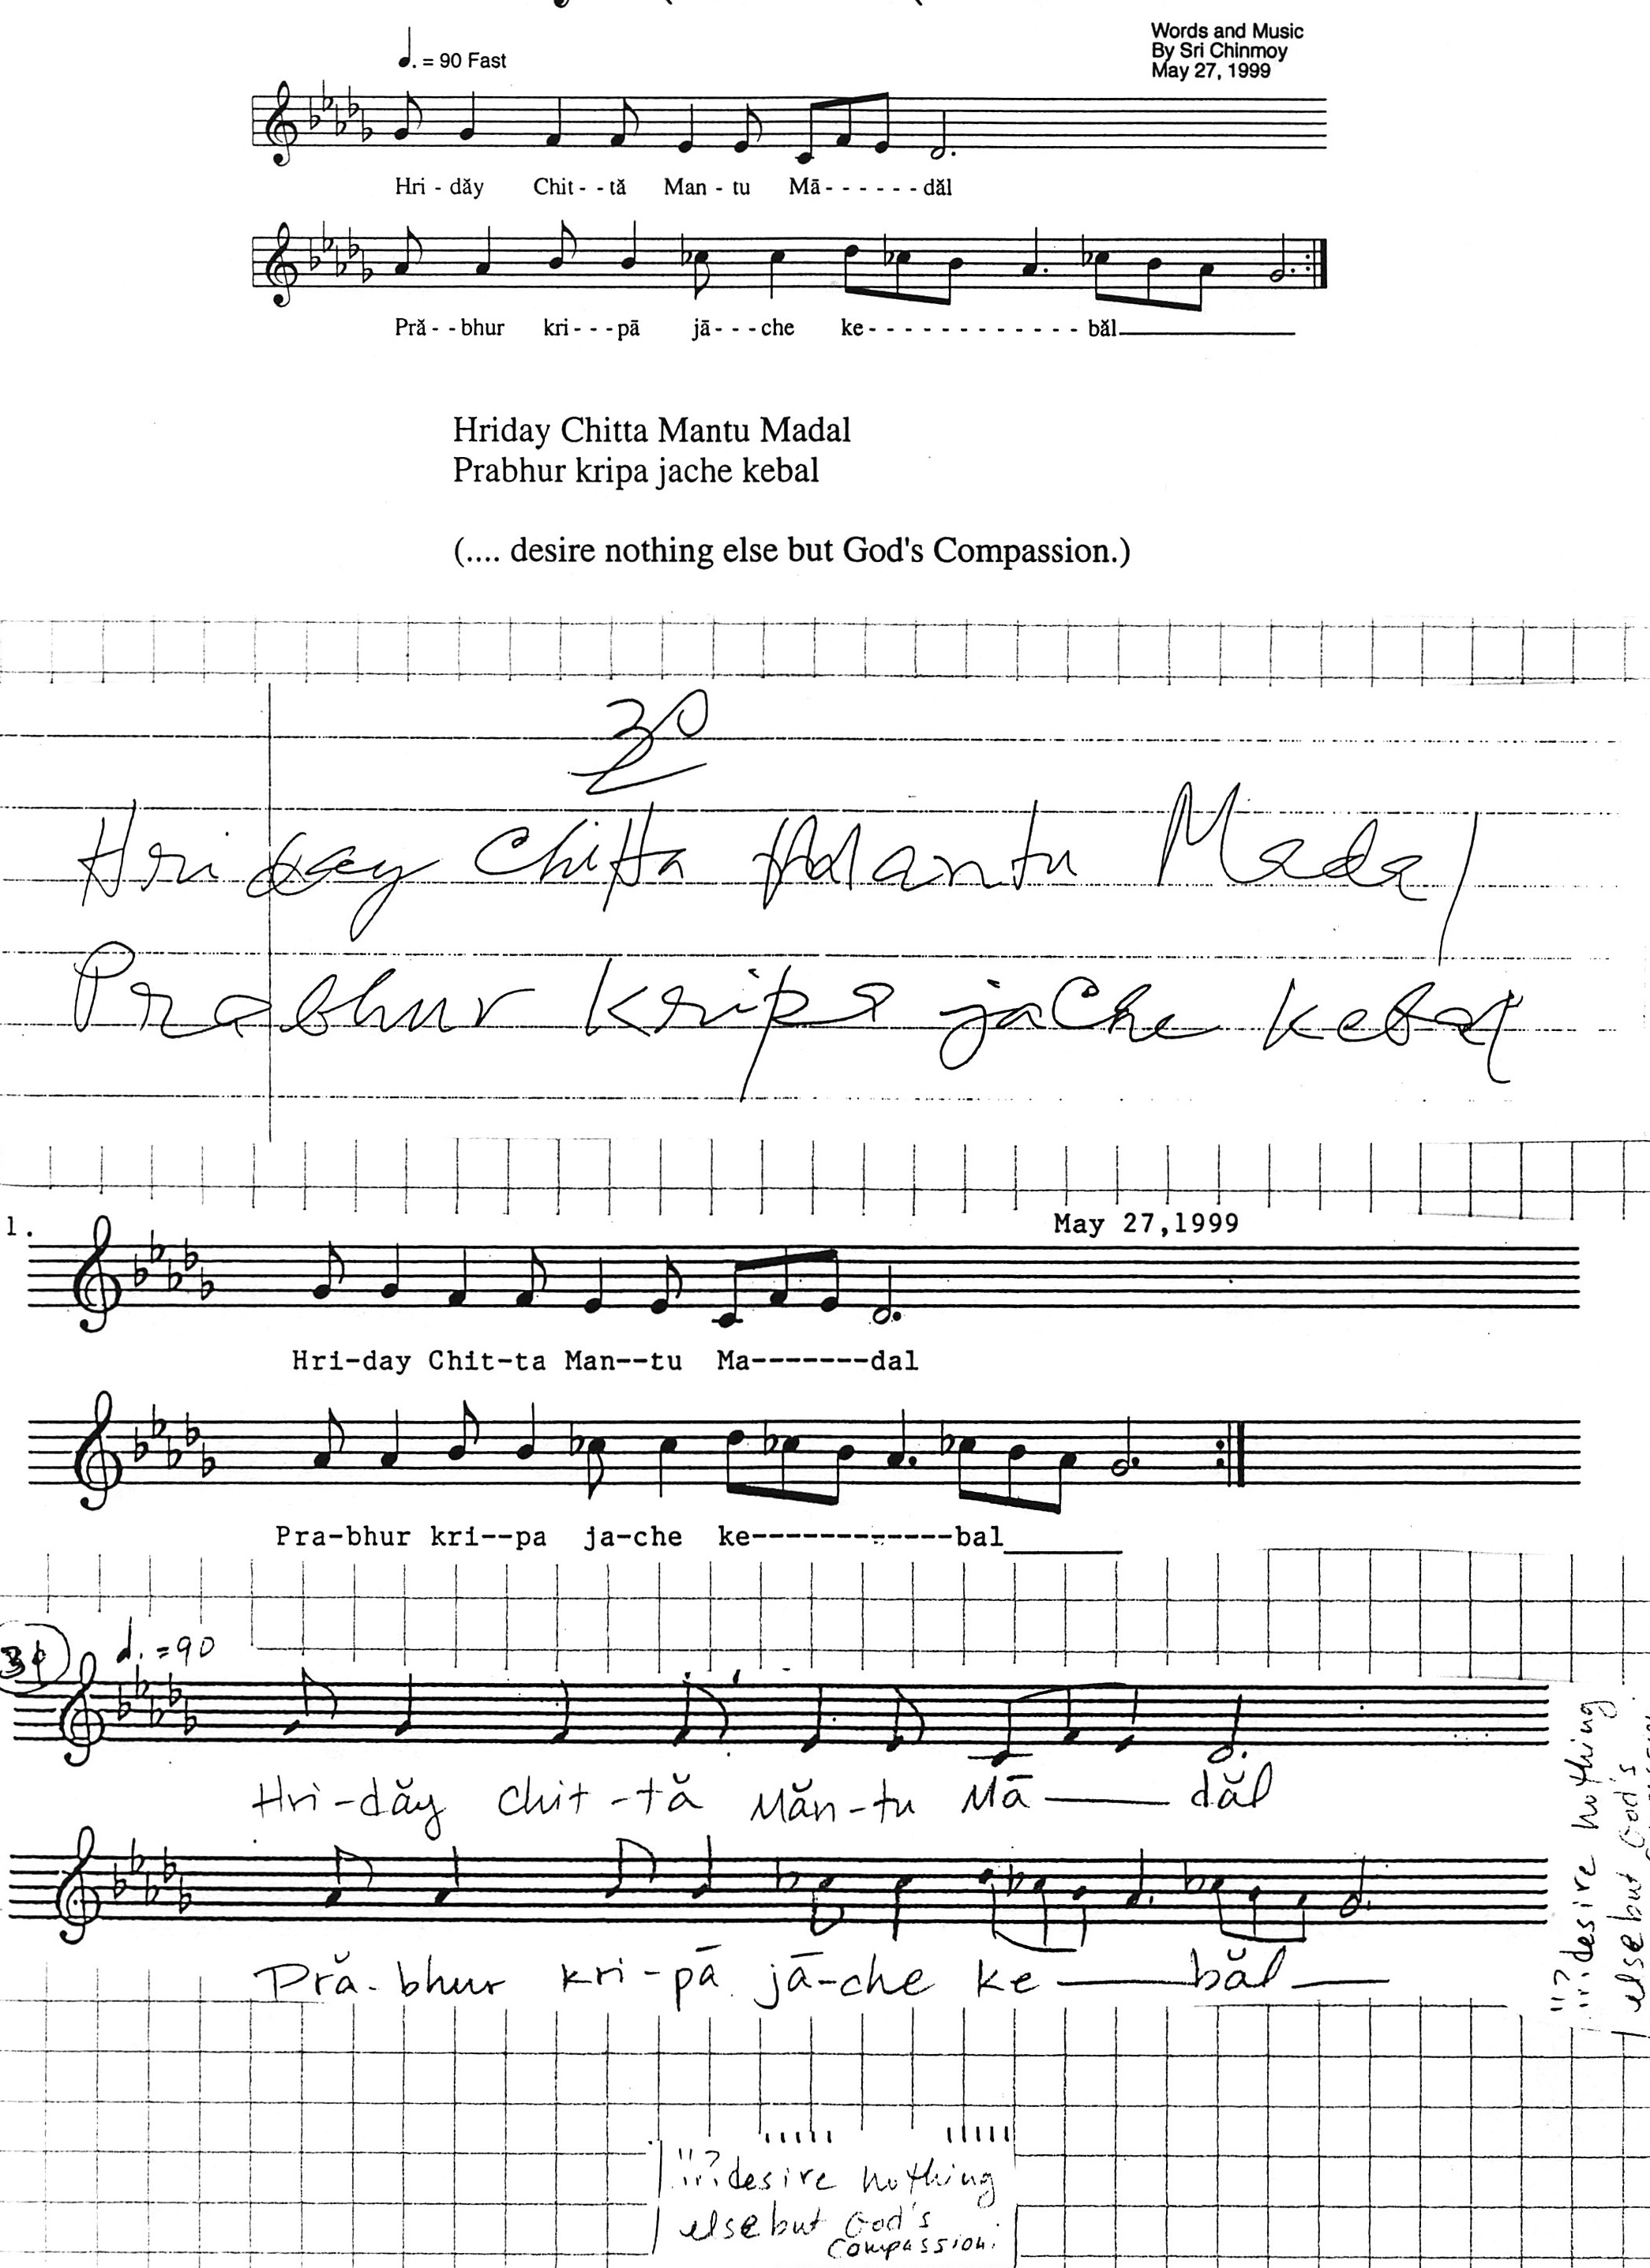 ♩. = 90 Fast
Words and Music
By Sri Chinmoy
May 27, 1999
Hri - dăy Chit - - tă Man - tu Mā - - - - - - dăl
Pră - - bhur kri - - - pā jā - - - che ke - - - - - - - - - - - - - băl
Hriday Chitta Mantu Madal
Prabhur kripa jache kebal
(.... desire nothing else but God's Compassion.)
Hriday Chitta Mantu Madal
Prabhur Kripa jache kebal
1.
May 27,1999
Hri-day Chit-ta Man--tu Ma-------dal
Pra-bhur kri--pa ja-che ke------------bal
♩. = 90
Hri-dăy Chit-tă Măn-tu Mā — dăl
Pră-bhur kri-pā jā-che ke — băl —
desire nothing
else but God's
desire nothing
else but God's
Compassion.